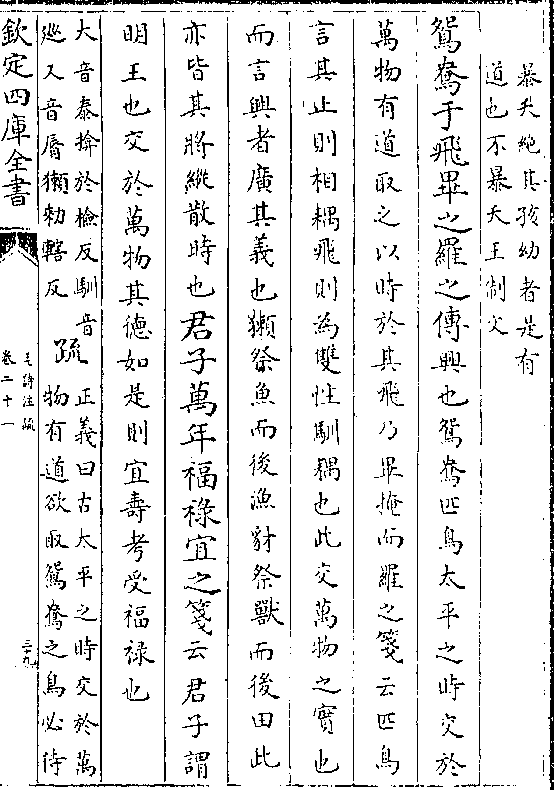 暴夭絶其孩幼者是有
道也不暴夭王制文
鴛鴦于飛畢之羅之傳興也鴛鴦匹鳥太平之時交於
萬物有道取之以時於其飛乃畢掩而羅之箋云匹鳥
言其止則相耦飛則為雙性馴耦也此交萬物之實也
而言興者廣其義也獺祭魚而後漁豺祭獸而後田此
亦皆其將縱散時也君子萬年福祿宜之箋云君子謂
明王也交於萬物其德如是則宜壽考受福祿也
大音泰揜於檢反馴音
巡又音脣獺勑轄反
疏
正義曰古太平之時交於萬
物有道欲取鴛鴦之鳥必待
欽定四庫全書
毛詩注疏
卷二十一
三十九